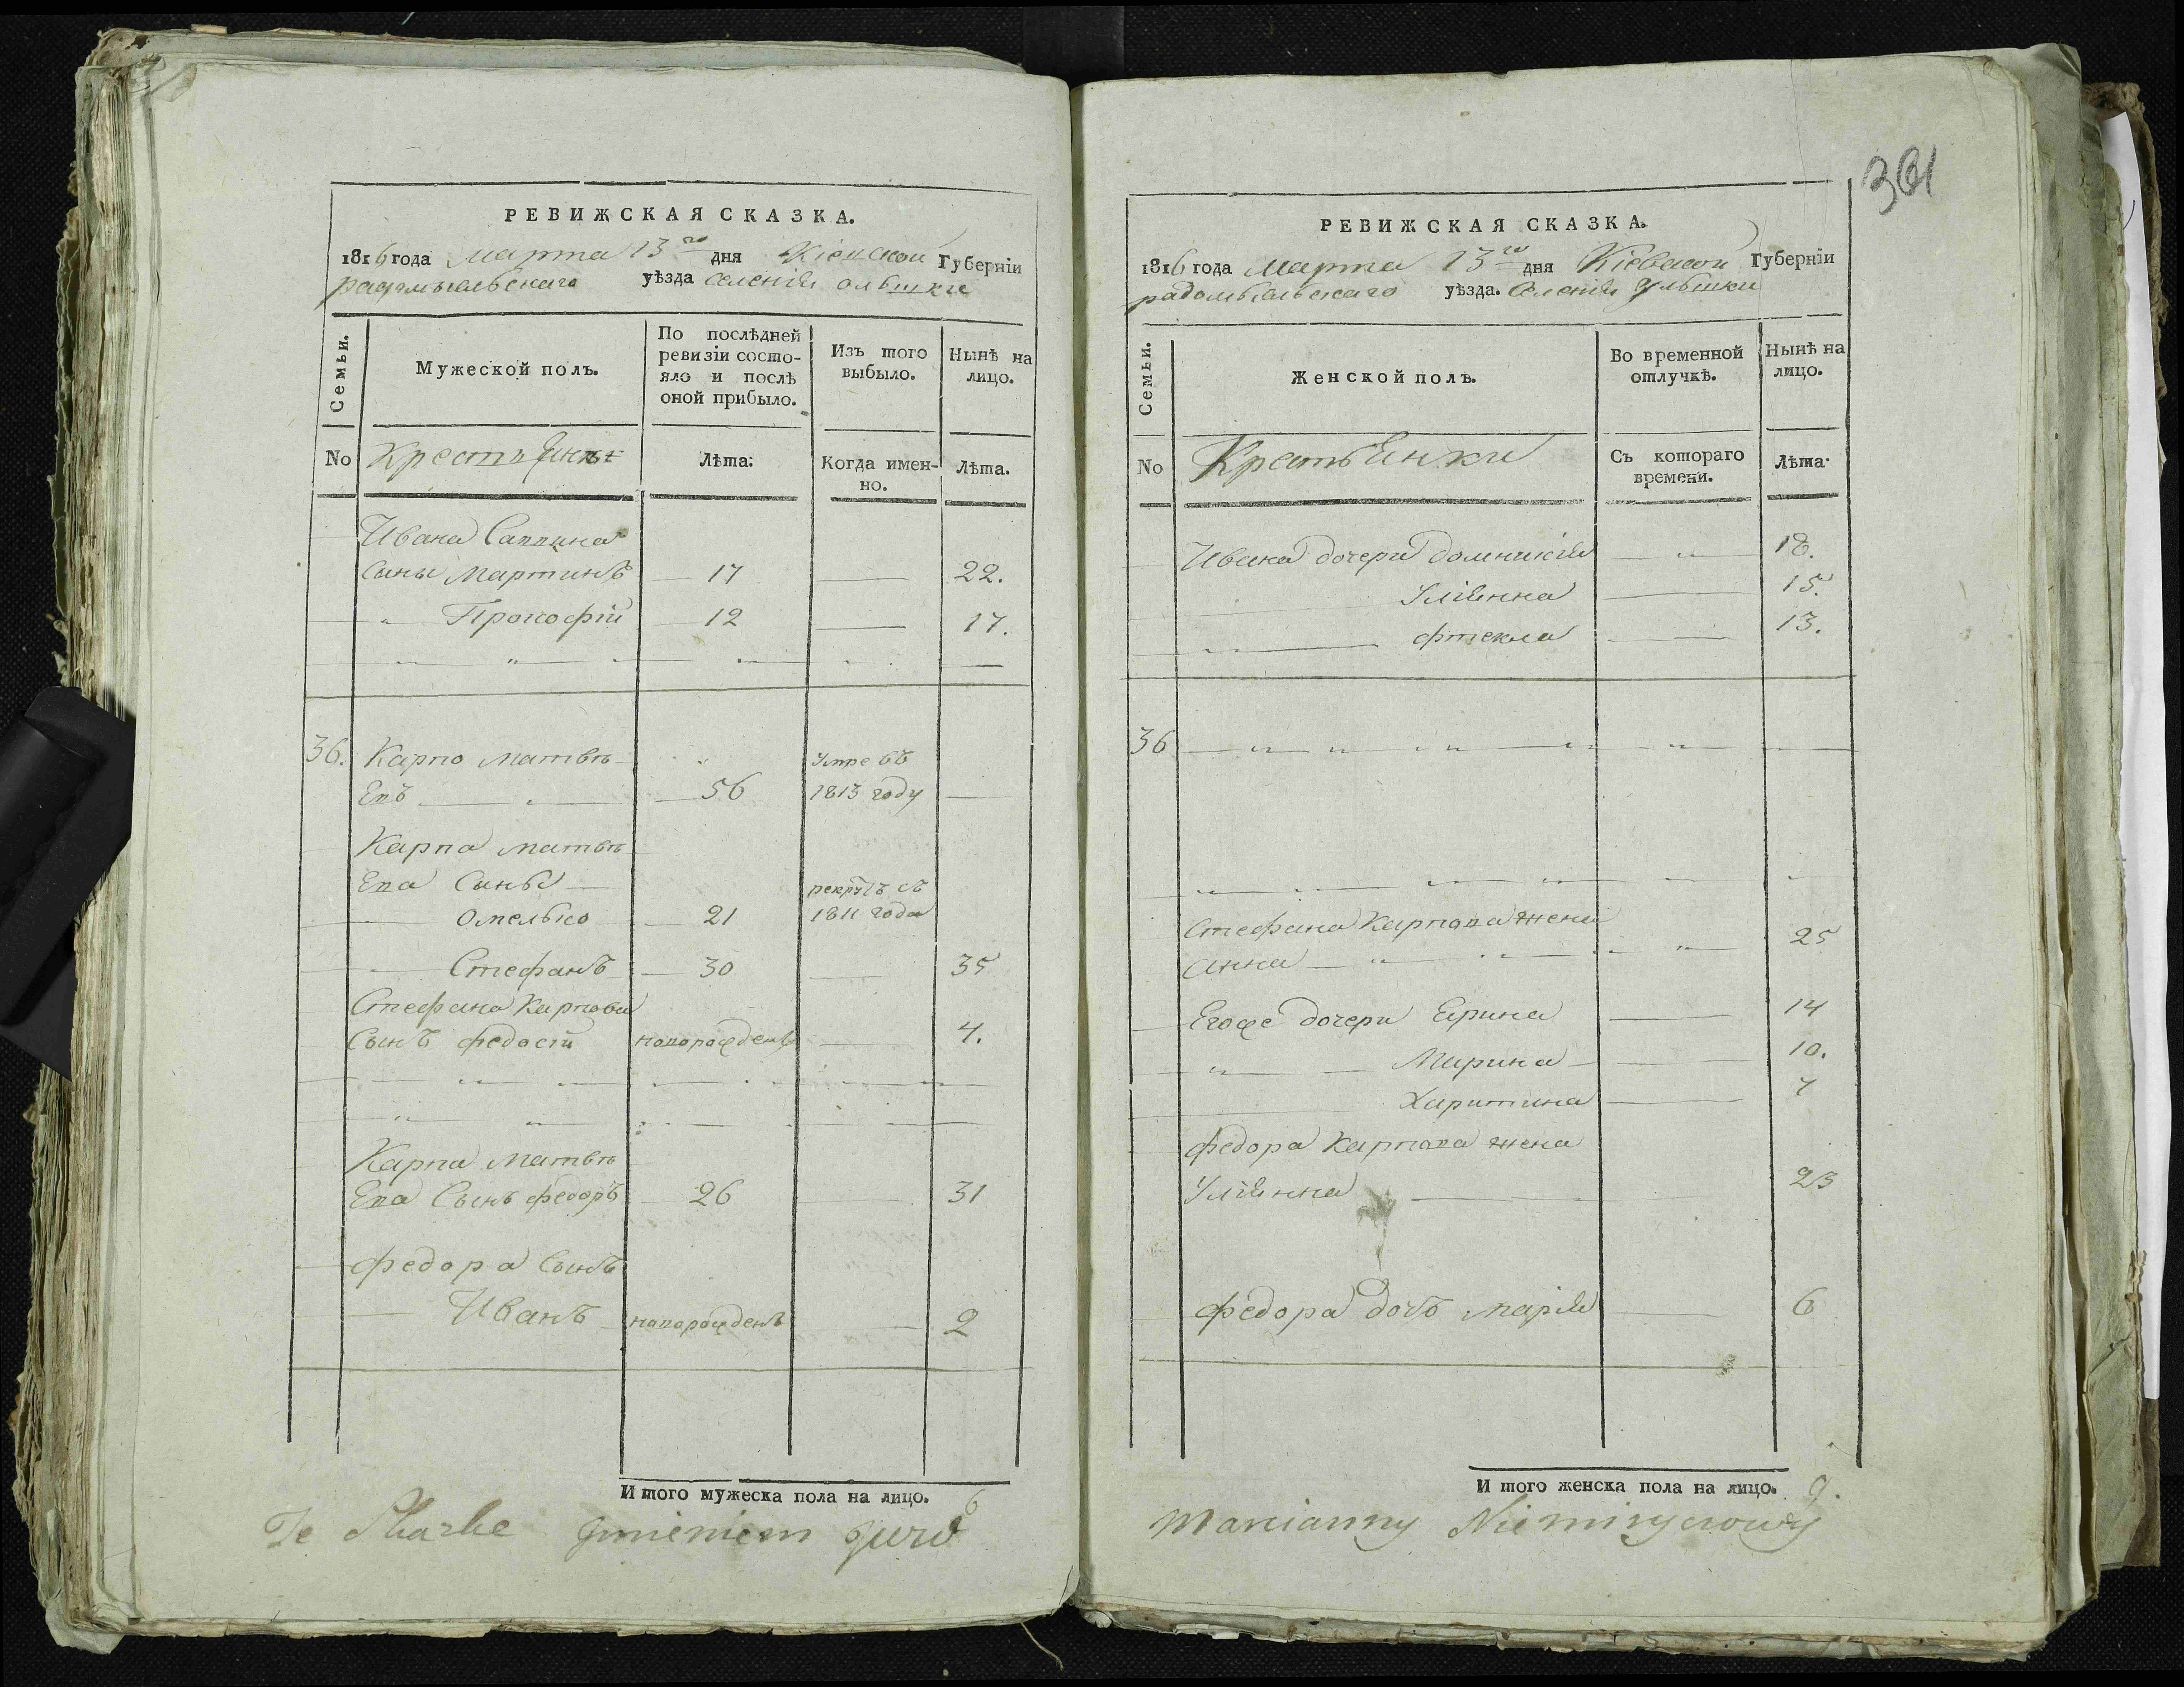 РЕВИЖСКАЯ СКАЗКА.
1816 года Марта 13го дня Кіевской Губерніи
радомысльскаго уѣзда селенія ольшки
Семьи. Мужеской полъ. По послѣдней ревизіи состояло и послѣ оной прибыло. Изъ того выбыло. Нынѣ на лицо.
No Крестьяне Лѣта: Когда именно. Лѣта.
Ивана
Сыны Мартинъ 17 22.
" Прокофій 12 17.
36. Карпо Матвѣ умре въ
Евъ 56 1813 году
Карпа Матвѣ
Ева Сынъ рекрутъ съ
Омелько 21 1811 года
Стефанъ 30 35
Стефана Карпова
Сынъ Федосій новорожденъ 4.
Карпа Матвѣ
Ева Сынъ федоръ 26 31
Федора Сынъ
Иванъ новорожденъ 2
И того мужеска пола на лицо. 6
Te Skazke Jmieniem
361
РЕВИЖСКАЯ СКАЗКА.
1816 года Марта 13го дня Кіевской Губерніи
радомысльскаго уѣзда. Селенія Ульшки
Семьи. Женской полъ. Во временной отлучкѣ. Нынѣ на лицо.
No Крестьянки Съ котораго времени. Лѣта.
Ивана дочери Домникія 18.
Уліянна 15.
Фтекла 13.
36
Стефана Карпова жена
Анна 25
Егоже дочери Ерина 14
" Марина 10.
Харитина 7
Федора Карпова жена
Уліянна 23
Федора дочь Марія 6
И того женска пола на лицо. 9.
Marcianny Niemirycrowy